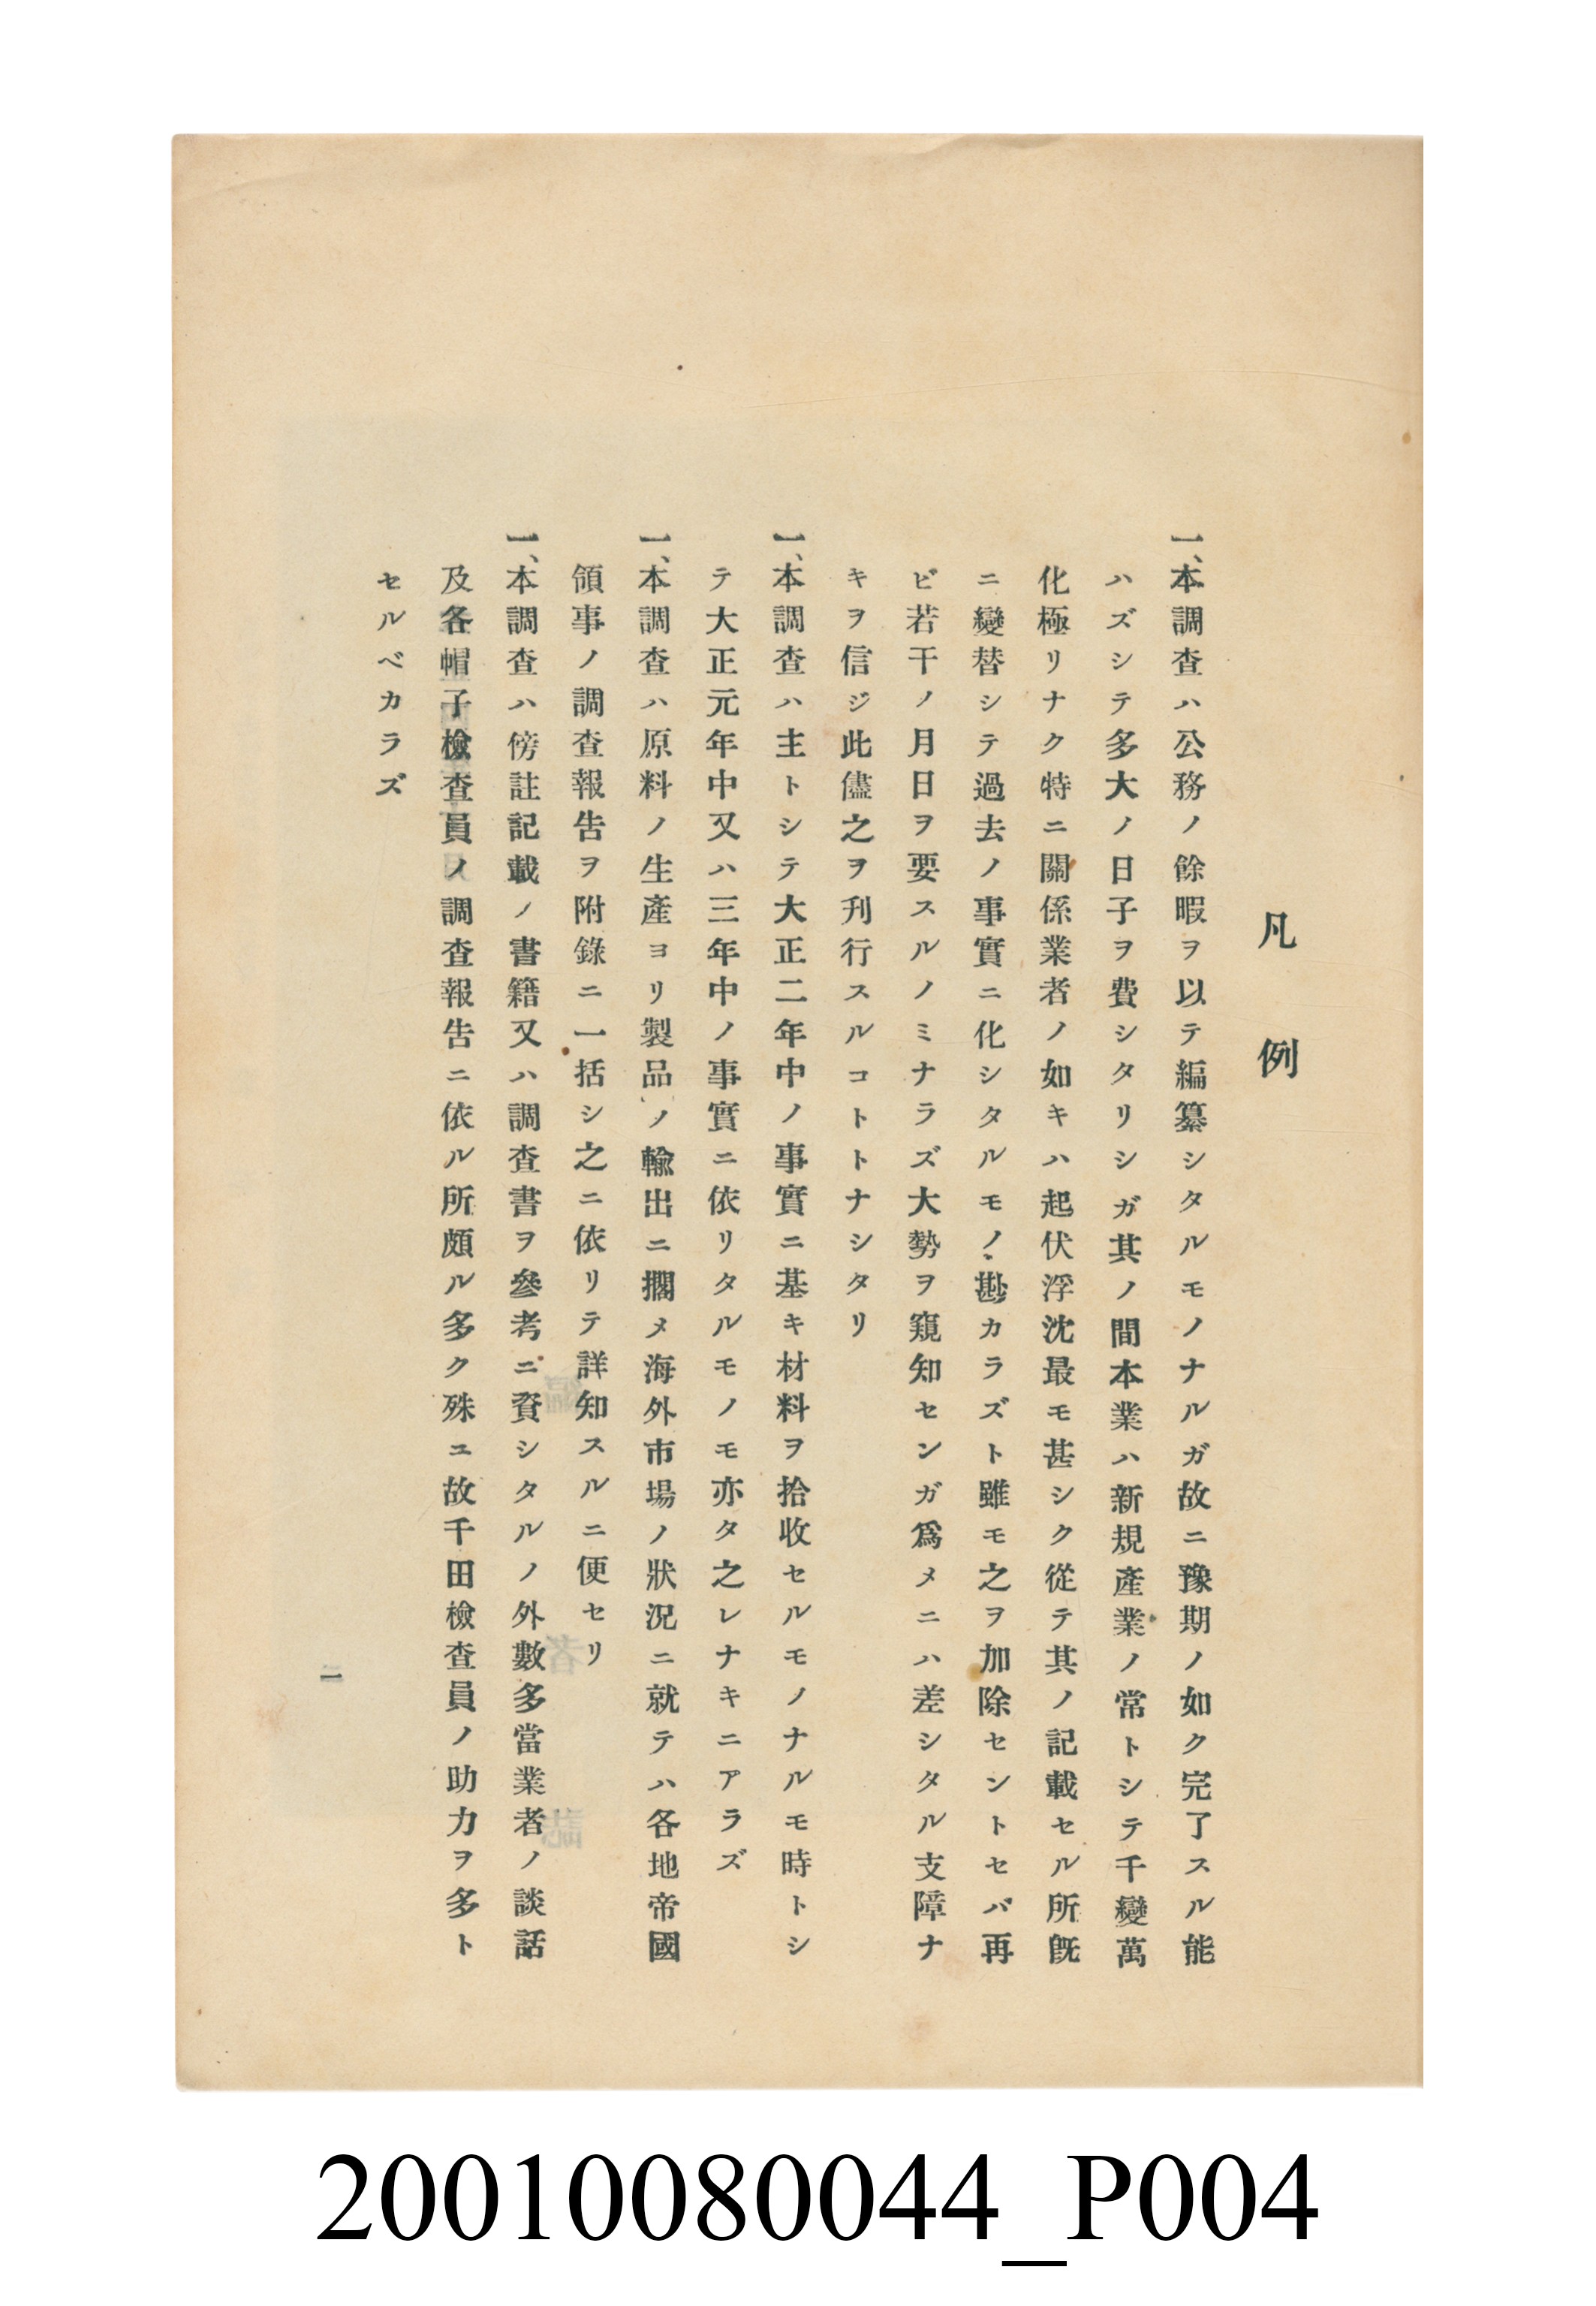 凡例
一、本調査ハ公務ノ餘暇ヲ以テ編纂シタルモノナルガ故ニ豫期ノ如ク完了スル能
ハズシテ多大ノ日子ヲ費シタリシガ其ノ間本業ハ新規產業ノ常トシテ千變萬
化極リナク特ニ關係業者ノ如キハ起伏浮沈最モ甚シク從テ其ノ記載セル所旣
ニ變替シテ過去ノ事實ニ化シタルモノ、尠カラズト雖モ之ヲ加除セントセバ再
ビ若干ノ月日ヲ要スルノミナラズ大勢ヲ窺知センガ爲メニハ差シタル支障ナ
キヲ信ジ此儘之ヲ刋行スルコトトナシタリ
一、本調査ハ主トシテ大正二年中ノ事實ニ基キ材料ヲ拾收セルモノナルモ時トシ
テ大正元年中又ハ三年中ノ事實ニ依リタルモノモ亦タ之レナキニアラズ
一、本調査ハ原料ノ生產ヨリ製品ノ輸出ニ擱メ海外市場ノ狀況ニ就テハ各地帝國
領事ノ調査報告ヲ附錄ニ一括シ之ニ依リテ詳知スルニ便セリ
一、本調査ハ傍註記載ノ書籍又ハ調査書ヲ參考ニ資シタルノ外數多當業者ノ談話
及各帽子檢査員ノ調査報告ニ依ル所頗ル多ク殊ニ故千田檢査員ノ助力ヲ多ト
セルベカラズ
一
20010080044_P004